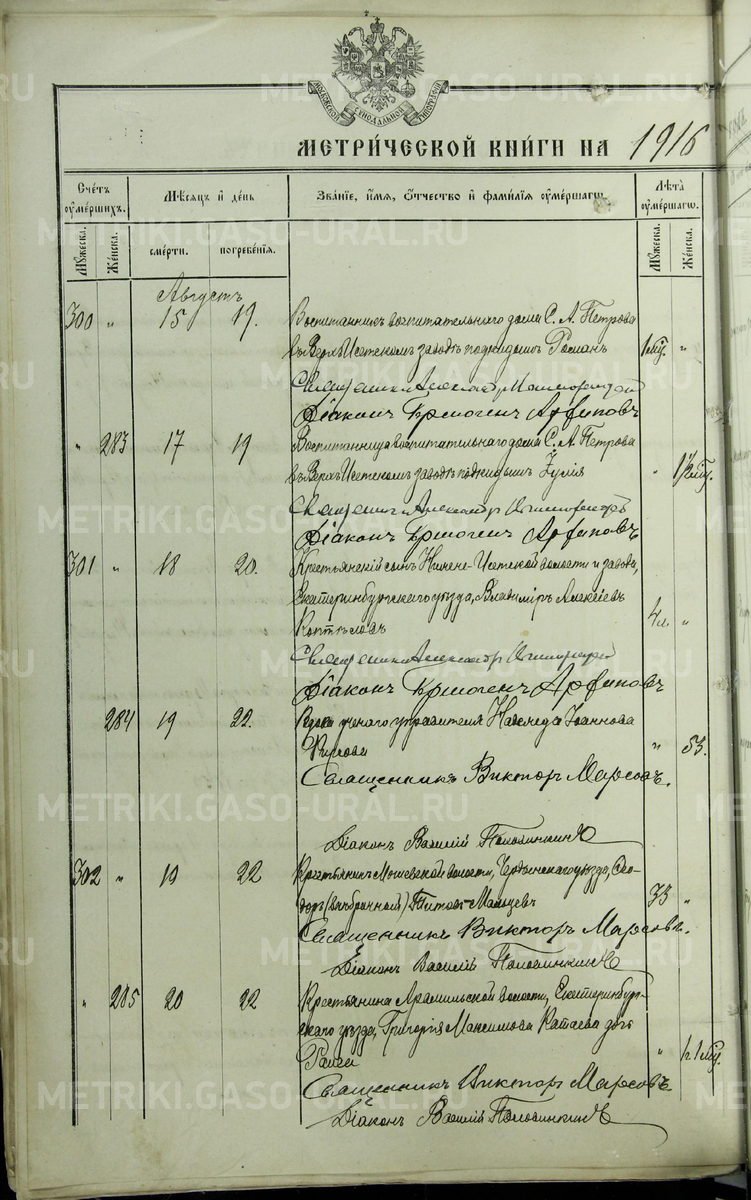 МОСКОВСКОЙ СѴНОДАЛЬНОЙ ТИПОГРАФІИ
МЕТРИ́ЧЕСКОЙ КНИ́ГИ НА 1916
Счетъ оумершихъ. Мѣсяцъ и день Званіе, имя, отчество и фамилія оумершагѡ. Лѣта оумершагѡ.
Мужеска. Женска. смерти. погребенія. Мужеска. Женска.
Августъ
300 " 15 19. Воспитанникъ воспитательнаго дома С. А. Петрова
въ Верхъ Исетскомъ заводѣ подкидышъ Романъ 1 мѣс. "
Священникъ Александръ
Діаконъ Ермогенъ Арфиповъ
" 283 17 19 Воспитанница воспитательнаго дома С. А. Петрова
въ Верхъ Исетскомъ заводѣ подкидышъ Юлія " 1½ мѣс.
Священникъ Александръ
Діаконъ Ермогенъ Арфиповъ
301 " 18 20. Крестьянскій сынъ Нижне-Исетской волости и завода,
Екатеринбургскаго уѣзда, Владиміръ Алексѣевъ
Котѣловъ 4 л. "
Священникъ Александръ
Діаконъ Ермогенъ Арфиповъ
284 19 22. Вдова управителя Надежда Іоаннова
" 53.
Священникъ Викторъ Марсовъ.
Діаконъ Василій Половинкинъ
302 " 19 22 Крестьянинъ Мошевской волости, Чердынскаго уѣзда, Ѳео-
доръ (внѣбрачный) Титовъ Мальцевъ 33 "
Священникъ Викторъ Марсовъ.
Діаконъ Василій Половинкинъ
" 285 20 22 Крестьянина Арамильской волости, Екатеринбург-
скаго уѣзда, Григорія Максимова Катаева дочь
Раиса " 1 мѣс.
Священникъ Викторъ Марсовъ
Діаконъ Василій Половинкинъ
METRIKI.GASO-URAL.RU